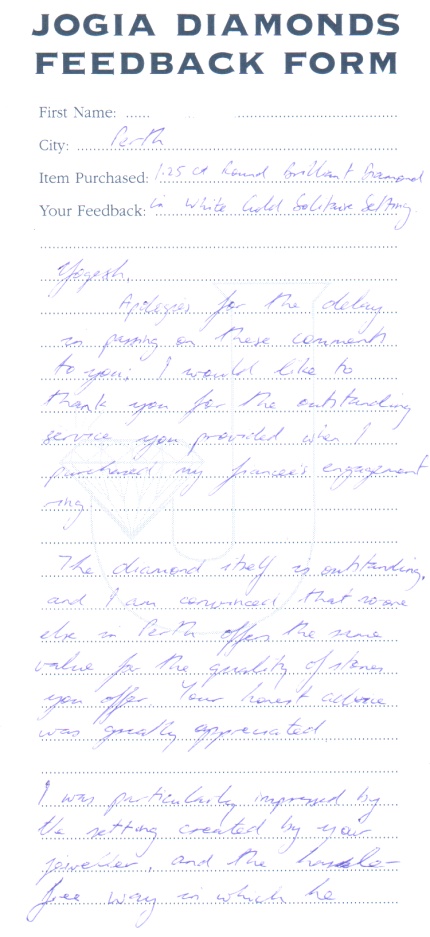 JOGIA DIAMONDS
FEEDBACK FORM
First Name: ......
City: Perth
Item Purchased: 1.25 ct Round Brilliant Diamond
Your Feedback: in White Gold Solitaire Setting
Yogesh,
Apologies for the delay
in passing on these comments
to you; I would like to
thank you for the outstanding
service you provided when I
purchased my fiancee's engagement
ring
The diamond itself is outstanding,
and I am convinced that no one
else in Perth offers the same
value for the quality of stones
you offer. Your honest advice
was greatly appreciated.
I was particularly impressed by
the setting created by your
jeweller, and the hassle-
free way in which he